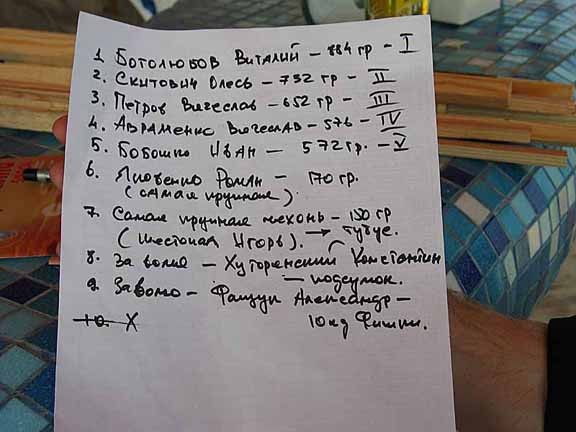 1. Боголюбов Виталий – 884 гр – I
2. Скитович Олесь – 732 гр – II
3. Петров Вячеслав – 652 гр – III
4. Авраменко Вячеслав – 576 – IV
5. Бобошко Иван – 572 гр. – V
6. Яковенко Роман – 170 гр.
(самая крупная)
7. Самая крупная мехонь – 150 гр
(Шестопал Игорь). →
8. За волю – Хуторенский Константин
– подсумок.
9. За волю – Фащук Александр –
10. X